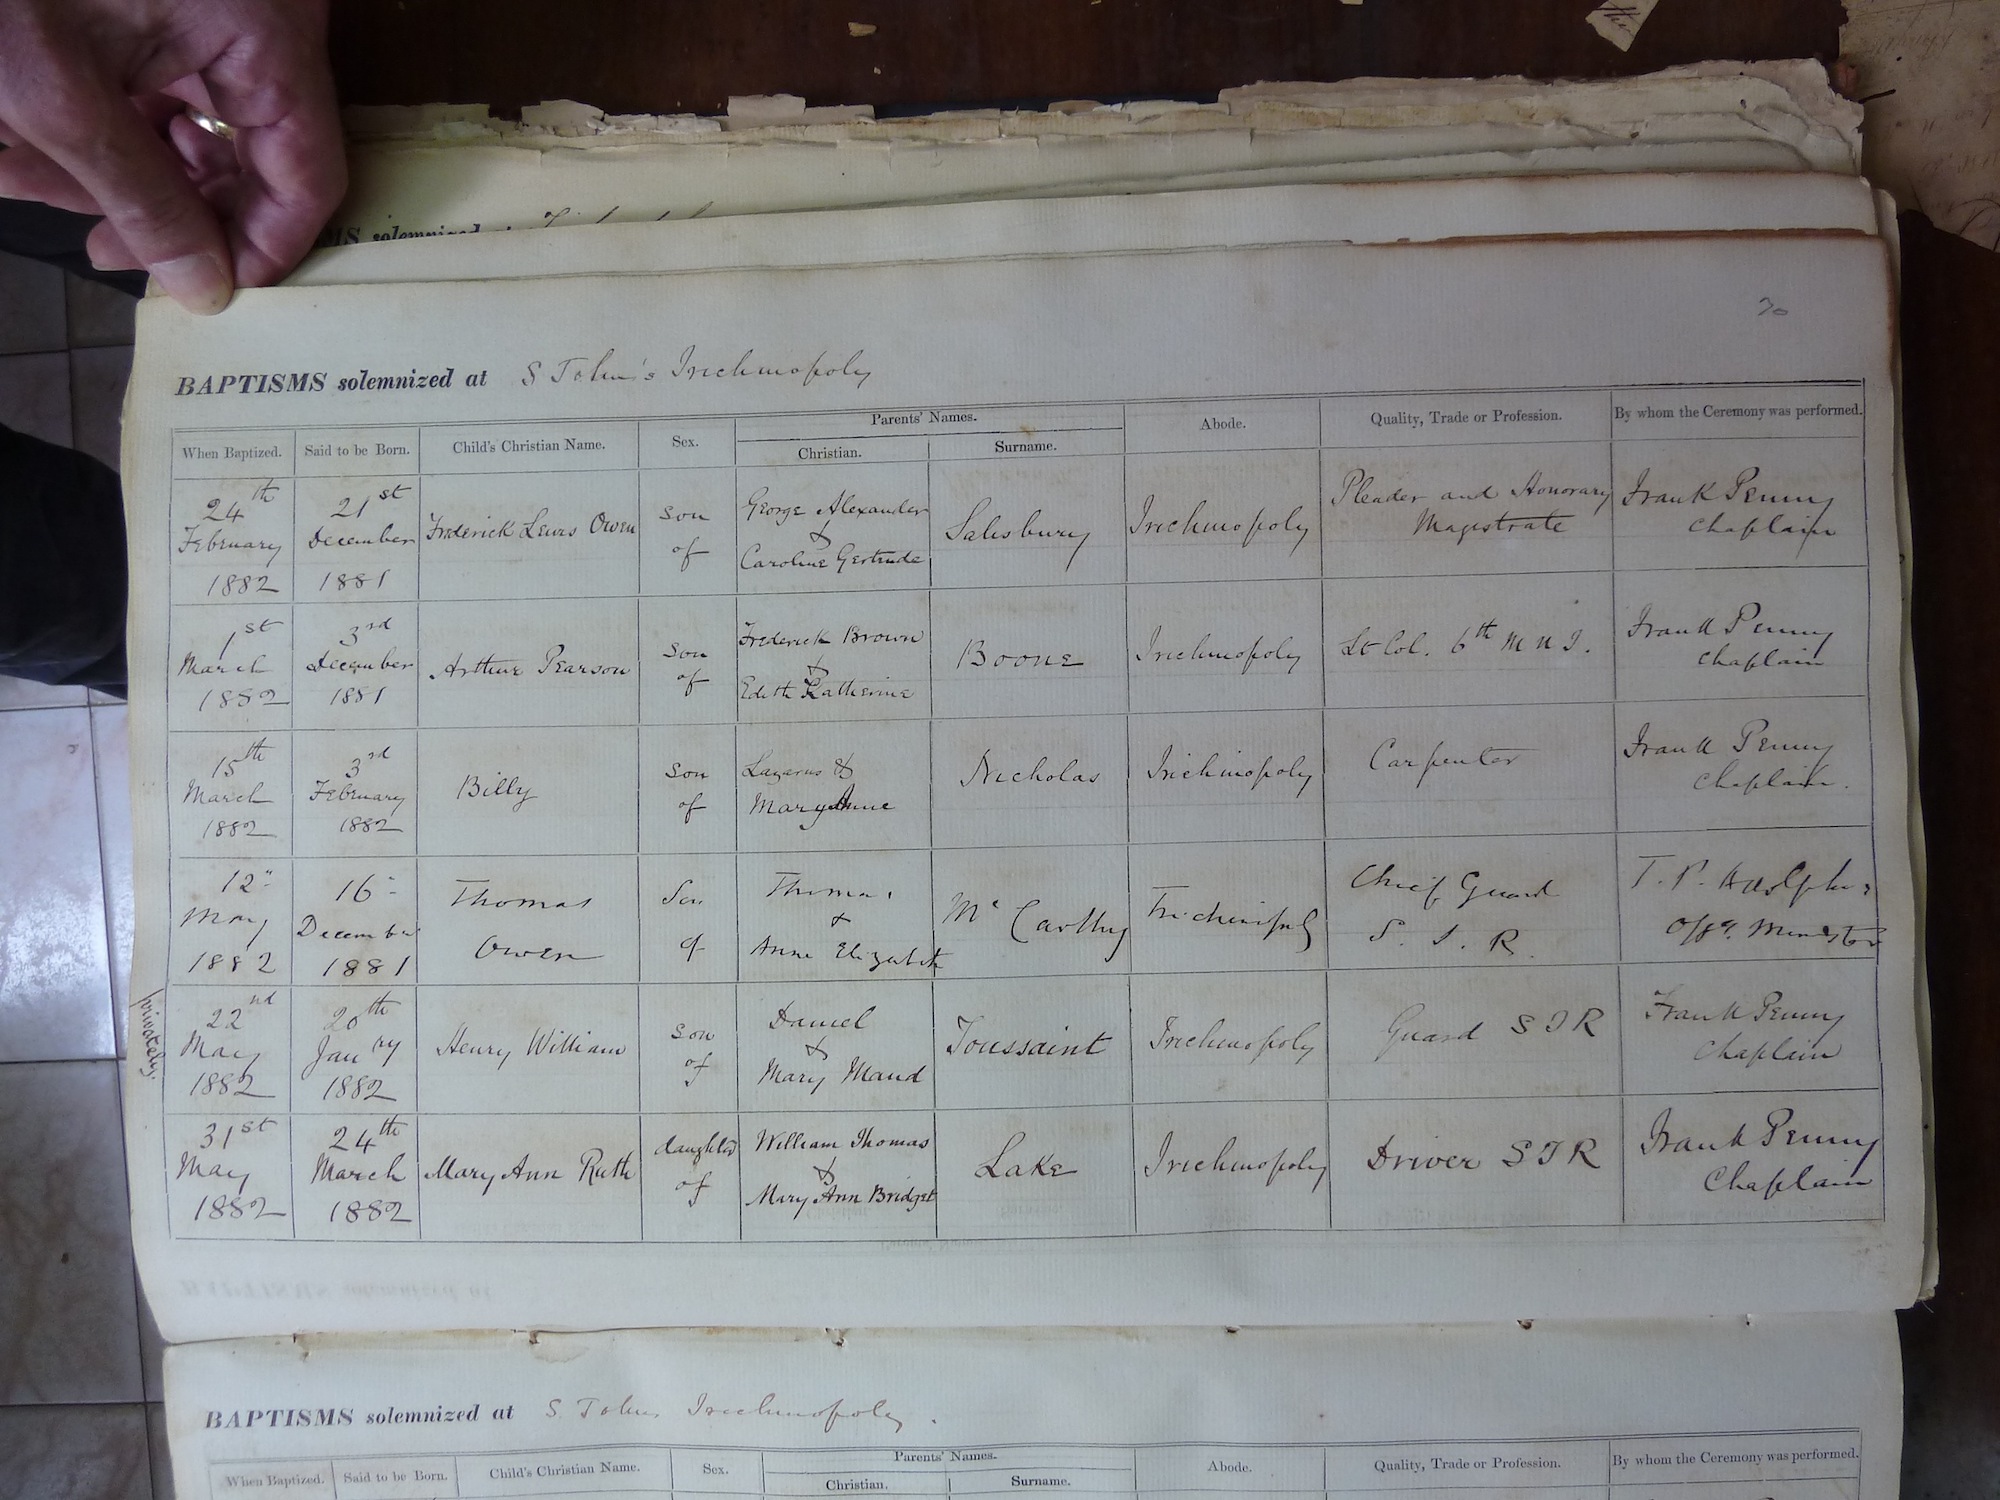 30
BAPTISMS solemnized at S John's Trichinopoly
When Baptized. Said to be Born. Child's Christian Name. Sex. Parents' Names. Abode. Quality, Trade or Profession. By whom the Ceremony was performed.
Christian. Surname.
24th February 1882 21st December 1881 Frederick Lewis Owen son of George Alexander & Caroline Gertrude Salisbury Trichinopoly Pleader and Honorary Magistrate Frank Penny Chaplain
1st March 1882 3rd December 1881 Arthur Pearson son of Frederick Brown & Edith Katherine Boone Trichinopoly Lt Col. 6th M N I. Frank Penny Chaplain
15th March 1882 3rd February 1882 Billy son of Lazarus & Mary Anne Nicholas Trichinopoly Carpenter Frank Penny Chaplain.
12" May 1882 16" December 1881 Thomas Owen Son of Thomas & Anne Elizabeth Mc Carthy Trichinopoly Chief Guard S. I. R. T. P. Adolphus Offg. Minister
privately.
22nd May 1882 20th Jan'ry 1882 Henry William son of Daniel & Mary Maud Toussaint Trichinopoly Guard S I R Frank Penny Chaplain
31st May 1882 24th March 1882 Mary Ann Ruth daughter of William Thomas & Mary Ann Bridget Lake Trichinopoly Driver S I R Frank Penny Chaplain
BAPTISMS solemnized at S. Johns Trichinopoly.
When Baptized. Said to be Born. Child's Christian Name. Sex. Parents' Names. Abode. Quality, Trade or Profession. By whom the Ceremony was performed.
Christian. Surname.